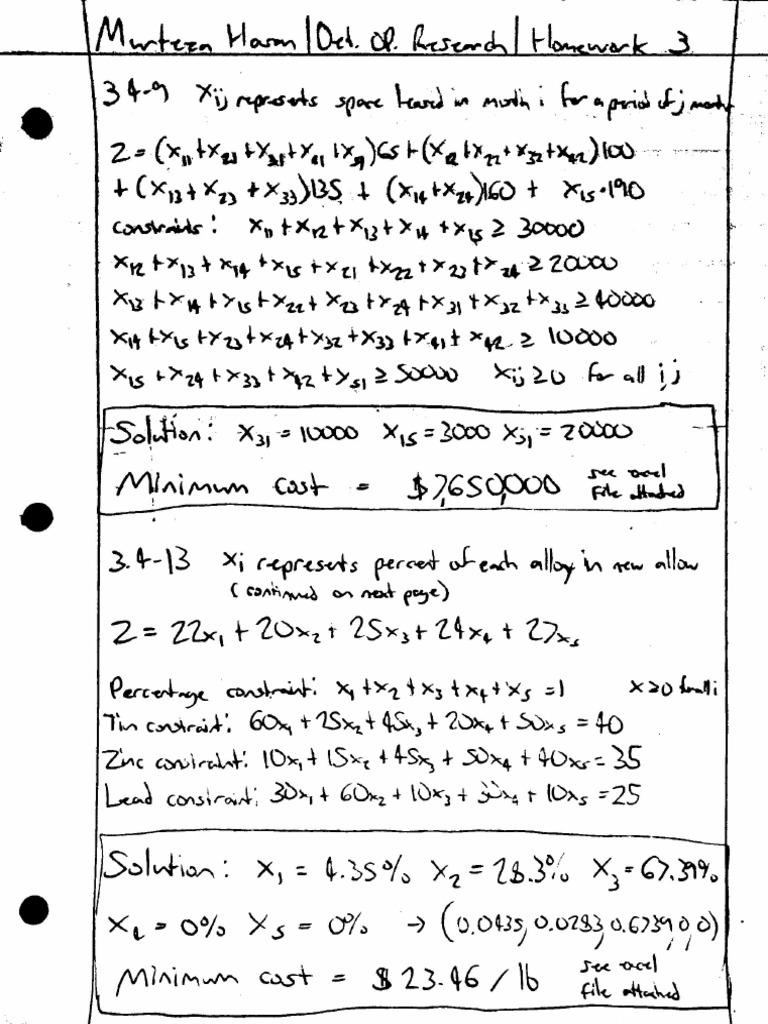 Murteza Hasan | Det. Op. Research | Homework 3
3.4-9 Xij represents space leased in month i for a period of j months
Z = (x11+x21+x31+x41+x51)65+(x12+x22+x32+x42)100
+ (x13+x23+x33)135 + (x14+x24)160 + x15·190
constraints: x11+x12+x13+x14+x15 ≥ 30000
x12+x13+x14+x15+x21+x22+x23+x24 ≥ 20000
x13+x14+x15+x22+x23+x24+x31+x32+x33 ≥ 40000
x14+x15+x23+x24+x32+x33+x41+x42 ≥ 10000
x15+x24+x33+x42+x51 ≥ 50000 xij ≥ 0 for all ij
Solution: X31 = 10000 X15 = 3000 X51 = 20000
Minimum cost = $7,650,000 see excel
file attached
3.4-13 xi represents percent of each alloy in new allow
(continued on next page)
Z = 22x1 + 20x2 + 25x3 + 24x4 + 27x5
Percentage constraint: x1+x2+x3+x4+x5 = 1 x ≥ 0 for all i
Tin constraint: 60x1 + 25x2 + 45x3 + 20x4 + 50x5 = 40
Zinc constraint: 10x1 + 15x2 + 45x3 + 50x4 + 40x5 = 35
Lead constraint: 30x1 + 60x2 + 10x3 + 30x4 + 10x5 = 25
Solution: X1 = 4.35% X2 = 28.3% X3 = 67.39%
X4 = 0% X5 = 0% → (0.0435, 0.0283, 0.6739, 0, 0)
Minimum cost = $23.46 / lb see excel
file attached